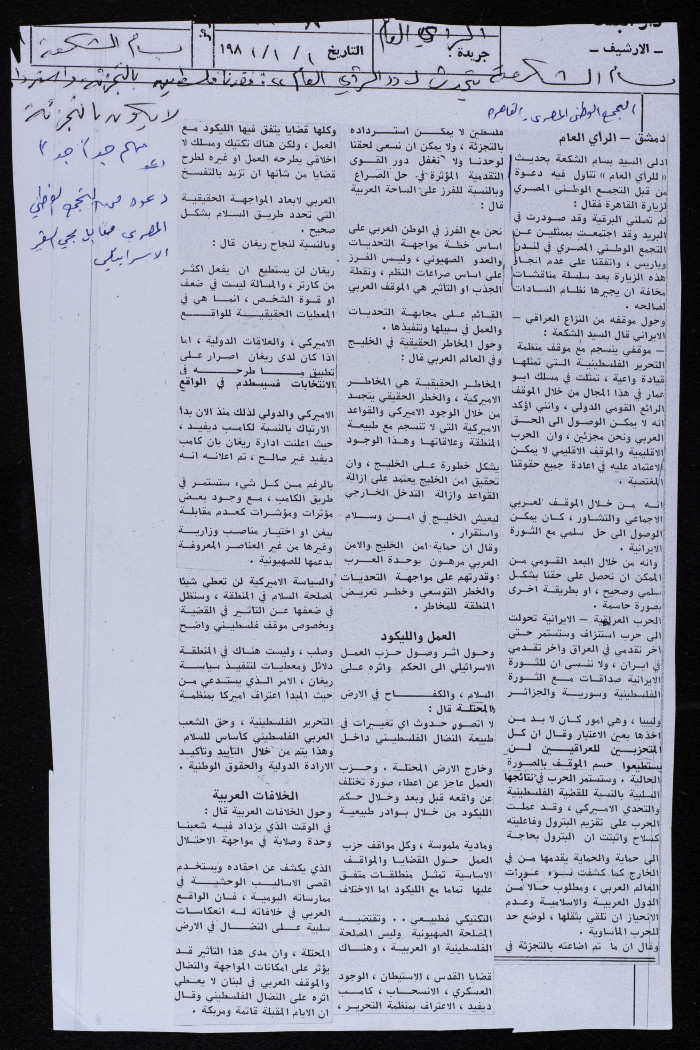 دار البعث
ـ الارشيف ـ
جريدة
الرأي العام
التاريخ ١ / ١ / ١٩٨١
بسام الشكعة
بسام الشكعة يتحدث لـ «الرأي العام»: فقدنا فلسطين بالتجزئة واسترداد
لا يكون بالتجزئة
هام جداً جداً
دعوة من التجمع الوطني
المصري مقابل مجيء سفير
الاسرائيلي
التجمع الوطني المصري ـ القاهرة
دمشق ـ الرأي العام
ادلى السيد بسام الشكعة بحديث
« للرأي العام » تناول فيه دعوة
من قبل التجمع الوطني المصري
لزيارة القاهرة فقال :
لم تصلني البرقية وقد صودرت في
البريد وقد اجتمعت بممثلين عن
التجمع الوطني المصري في لندن
وباريس ، واتفقنا على عدم انجاز
هذه الزيارة بعد سلسلة مناقشات
مخافة ان يجيرها نظام السادات
لصالحه .
وحول موقفه من النزاع العراقي ـ
الايراني قال السيد الشكعة :
ـ موقفي ينسجم مع موقف منظمة
التحرير الفلسطينية التي تمثلها
قيادة واعية ، تمثلت في مسلك ابو
عمار في هذا المجال من خلال الموقف
الرائع القومي الدولي ، وانني اؤكد
انه لا يمكن الوصول الى الحق
العربي ونحن مجزئين ، وان الحرب
الاقليمية والموقف الاقليمي لا يمكن
الاعتماد عليه في اعادة جميع حقوقنا
المغتصبة .
انه من خلال الموقف العربي
الاجماعي والتشاور ، كان يمكن
الوصول الى حل سلمي مع الثورة
الايرانية .
وانه من خلال البعد القومي من
الممكن ان نحصل على حقنا بشكل
سلمي وصحيح ، او بطريقة اخرى
بصورة حاسمة .
الحرب العراقية ـ الايرانية تحولت
الى حرب استنزاف وستستمر حتى
اخر تقدمي في العراق واخر تقدمي
في ايران ، ولا ننسى ان للثورة
الايرانية صداقات مع الثورة
الفلسطينية وسورية والجزائر
وليبيا ، وهي امور كان لا بد من
اخذها بعين الاعتبار وقال ان كل
المتحزبين للعراقيين لن
يستطيعوا حسم الموقف بالصورة
الحالية . وستستمر الحرب في نتائجها
السلبية بالنسبة للقضية الفلسطينية
والتحدي الاميركي ، وقد عملت
الحرب على تقزيم البترول وفاعليته
كسلاح واثبتت ان البترول بحاجة
الى حماية والحماية يقدمها من في
الخارج كما كشفت نبوءة عورات
العالم العربي ، ومطلوب حالا من
الدول العربية والاسلامية وعدم
الانحياز ان تلقي بثقلها ، لوضع حد
للحرب المأساوية .
وقال ان ما تم اضاعته بالتجزئة في
فلسطين لا يمكن استرداده
بالتجزئة ، ولا يمكن ان نسعى لحقنا
لوحدنا ولا نغفل دور القوى
التقدمية المؤثرة في حل الصراع
وبالنسبة للفرز على الساحة العربية
قال :
نحن مع الفرز في الوطن العربي على
اساس خطة مواجهة التحديات
والعدو الصهيوني ، وليس الفرز
على اساس صراعات النظم ، ونقطة
الجذب او التأثير هي الموقف العربي
القائم على مجابهة التحديات
والعمل في سبيلها وتنفيذها .
وحول المخاطر الحقيقية في الخليج
وفي العالم العربي قال :
المخاطر الحقيقية هي المخاطر
الاميركية ، والخطر الحقيقي يتجسد
من خلال الوجود الاميركي والقواعد
الاميركية التي لا تنسجم مع طبيعة
المنطقة وعلاقاتها وهذا الوجود
يشكل خطورة على الخليج ، وان
تحقيق امن الخليج يعتمد على إزالة
القواعد وازالة التدخل الخارجي
ليعيش الخليج في امن وسلام
واستقرار .
وقال ان حماية امن الخليج والامن
العربي مرهون بوحدة العرب
وقدرتهم على مواجهة التحديات
والخطر التوسعي وخطر تعريض
المنطقة للمخاطر .
العمل والليكود
وحول اثر وصول حزب العمل
الاسرائيلي الى الحكم واثره على
السلام ، والكفاح في الارض
المحتلة قال :
لا اتصور حدوث اي تغييرات في
طبيعة النضال الفلسطيني داخل
وخارج الارض المحتلة . وحزب
العمل عاجز عن اعطاء صورة تختلف
عن واقعه قبل وبعد وخلال حكم
الليكود من خلال بوادر طبيعية
ومادية ملموسة ، وكل مواقف حزب
العمل حول القضايا والمواقف
الاساسية تمثل منطلقات متفق
عليها تماما مع الليكود اما الاختلاف
التكتيكي فطبيعي . . وتقتضيه
المصلحة الصهيونية وليس المصلحة
الفلسطينية او العربية ، وهناك
قضايا القدس ، الاستيطان ، الوجود
العسكري ، الانسحاب ، كامب
ديفيد ، الاعتراف بمنظمة التحرير ،
وكلها قضايا يتفق فيها الليكود مع
العمل ، ولكن هناك تكتيك ومسلك لا
اخلاقي يطرحه العمل او غيره لطرح
قضايا من شانها ان تزيد بالتفسخ
العربي لابعاد المواجهة الحقيقية
التي تحدد طريق السلام بشكل
صحيح .
وبالنسبة لنجاح ريغان قال :
ريغان لن يستطيع ان يفعل اكثر
من كارتر ، والمسألة ليست في ضعف
او قوة الشخص ، انما هي في
المعطيات الحقيقية للواقع
الاميركي ، والعلاقات الدولية ، اما
اذا كان لدى ريغان اصرار على
تطبيق ما طرحه في
الانتخابات فسيصطدم في الواقع
الاميركي والدولي لذلك منذ الان بدا
الارتباك بالنسبة لكامب ديفيد ،
حيث اعلنت ادارة ريغان بان كامب
ديفيد غير صالح ، تم اعلانه انه
بالرغم من كل شيء ستستمر في
طريق الكامب ، مع وجود بعض
مؤثرات ومؤشرات كعدم مقابلة
بيغن او اختيار مناصب وزارية
وغيرها من غير العناصر المعروفة
بدعمها للصهيونية .
والسياسة الاميركية لن تعطي شيئا
لمصلحة السلام في المنطقة ، وستظل
في ضعفها عن التأثير في القضية
وبخصوص موقف فلسطيني واضح
وصلب ، وليست هناك في المنطقة
دلائل ومعطيات لتنفيذ سياسة
ريغان ، الامر الذي يستدعي من
حيث المبدأ اعتراف اميركا بمنظمة
التحرير الفلسطينية ، وحق الشعب
العربي الفلسطيني كأساس للسلام
وهذا يتم من خلال التأييد وتأكيد
الارادة الدولية والحقوق الوطنية .
الخلافات العربية
وحول الخلافات العربية قال :
في الوقت الذي يزداد فيه شعبنا
وحدة وصلابة في مواجهة الاحتلال
الذي يكشف عن احقاده ويستخدم
اقصى الاساليب الوحشية في
ممارساته اليومية ، فان الواقع
العربي في خلافاته له انعكاسات
سلبية على النضال في الارض
المحتلة ، وان مدى هذا التأثير قد
يؤثر على امكانات المواجهة والنضال
والموقف العربي في لبنان لا يعطي
اثره على النضال الفلسطيني وقال
ان الايام المقبلة قاتمة ومربكة .